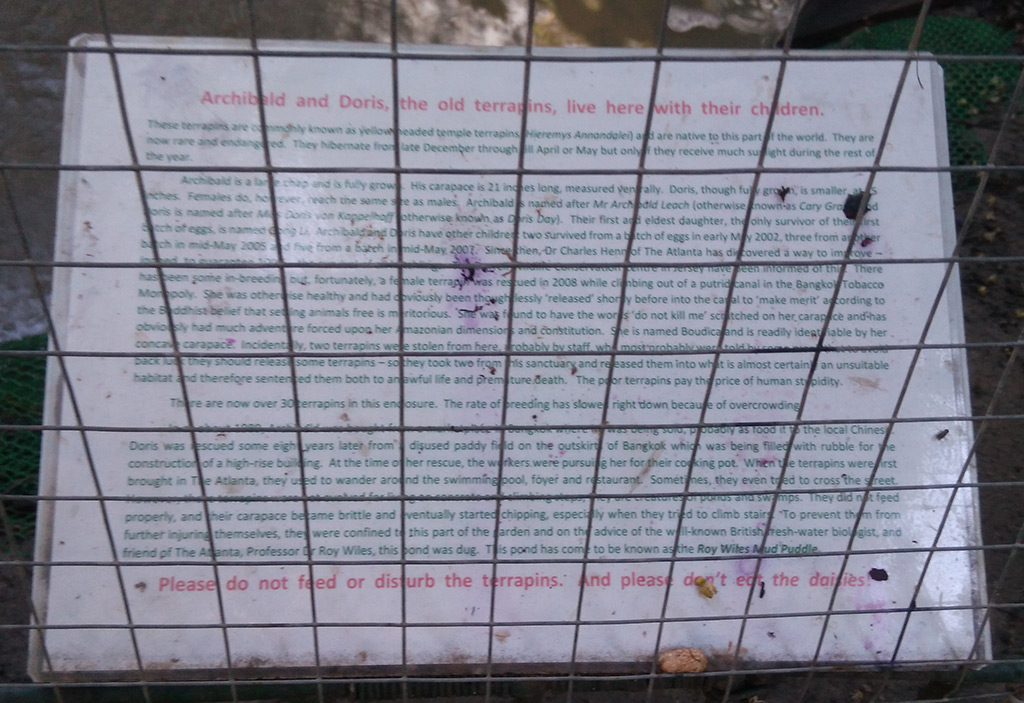 Archibald and Doris, the old terrapins, live here with their children.
These terrapins are commonly known as yellow headed temple terrapins, Hieremys Annondalei) and are native to this part of the world. They are
now rare and endangered. They hibernate from late December through till April or May but only if they receive much sunlight during the rest of
the year.
Archibald is a large chap and is fully grown. His carapace is 21 inches long, measured ventrally. Doris, though fully grown, is smaller, at
inches. Females do, however, reach the same size as males. Archibald is named after Mr Archibald Leach (otherwise known as Cary Grant) and
Doris is named after Miss Doris von Kappelhoff (otherwise known as Doris Day). Their first and eldest daughter, the only survivor of their first
batch of eggs, is named Gong Li. Archibald and Doris have other children: two survived from a batch of eggs in early May 2002, three from another
batch in mid-May 2005 and five from a batch in mid-May 2007. Since then, Dr Charles Henn of The Atlanta has discovered a way to improve –
Conservation Centre in Jersey have been informed of this. There
has been some in-breeding but, fortunately, a female terrapin was rescued in 2008 while climbing out of a putrid canal in the Bangkok Tobacco
Monopoly. She was otherwise healthy and had obviously been thoughtlessly 'released' shortly before into the canal to 'make merit' according to
the Buddhist belief that setting animals free is meritorious. She was found to have the words 'do not kill me' scratched on her carapace and has
obviously had much adventure forced upon her Amazonian dimensions and constitution. She is named Boudica and is readily identifiable by her
concave carapace. Incidentally, two terrapins were stolen from here, probably by staff, who most probably were told by
back luck they should release some terrapins – so they took two from this sanctuary and released them into what is almost certainly an unsuitable
habitat and therefore sentenced them both to an awful life and premature death. The poor terrapins pay the price of human stupidity.
There are now over 30 terrapins in this enclosure. The rate of breeding has slowed right down because of overcrowding.
Bangkok where it was being sold, probably as food to the local Chinese.
Doris was rescued some eight years later from a disused paddy field on the outskirts of Bangkok which was being filled with rubble for the
construction of a high-rise building. At the time of her rescue, the workers were pursuing her for their cooking pot. When the terrapins were first
brought in The Atlanta, they used to wander around the swimming pool, foyer and restaurant. Sometimes, they even tried to cross the street.
they are creatures of ponds and swamps. They did not feed
properly, and their carapace became brittle and eventually started chipping, especially when they tried to climb stairs. To prevent them from
further injuring themselves, they were confined to this part of the garden and on the advice of the well-known British fresh-water biologist, and
friend of The Atlanta, Professor Dr Roy Wiles, this pond was dug. This pond has come to be known as the Roy Wiles Mud Puddle.
Please do not feed or disturb the terrapins. And please don't eat the daisies!